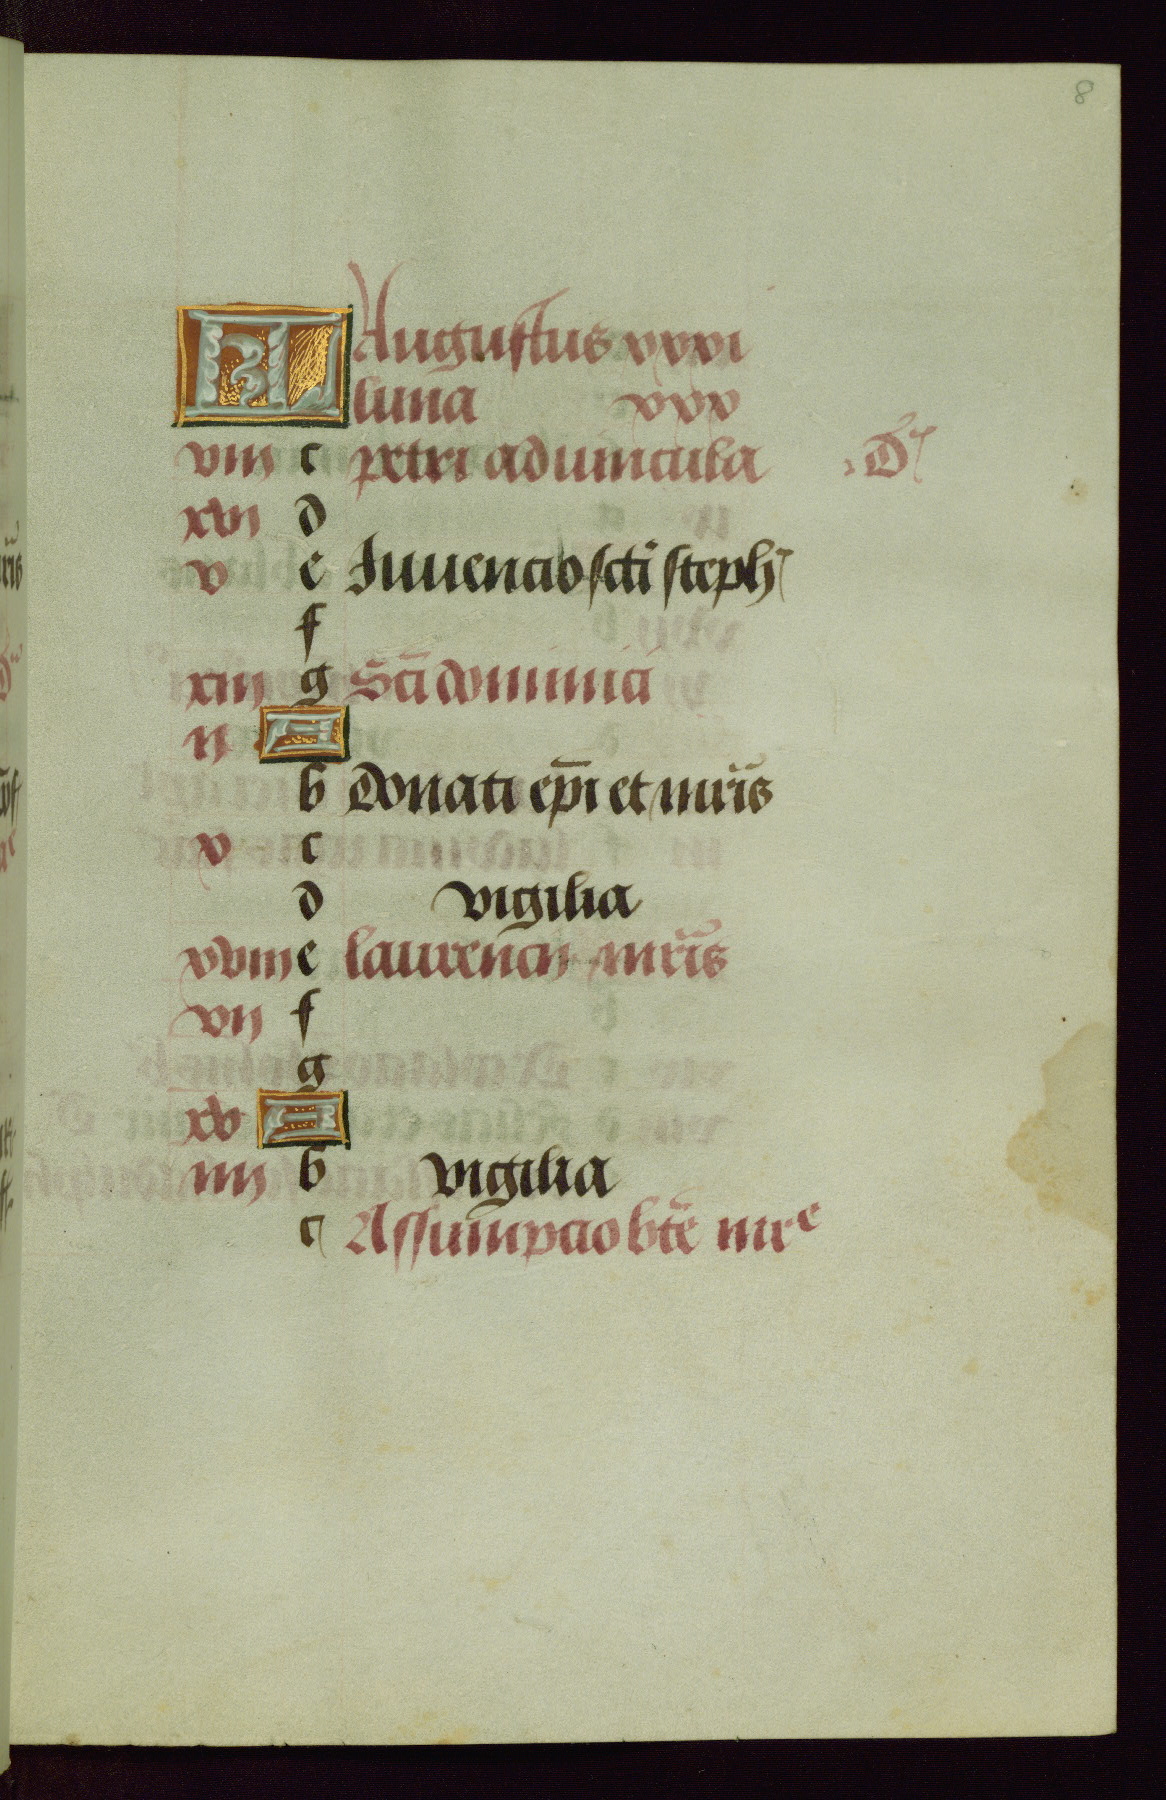 8
KL Augustus xxxi
luna xxx
viii c petri ad uincula . D
xvi d
v e Inuencio scti steph
f
xiii g Sci dominici
ii A
b Donati epi et mris
x c
d vigilia
xviii e laurencii mris
vii f
g
xv A
iiii b vigilia
c Assumpcio bte mre